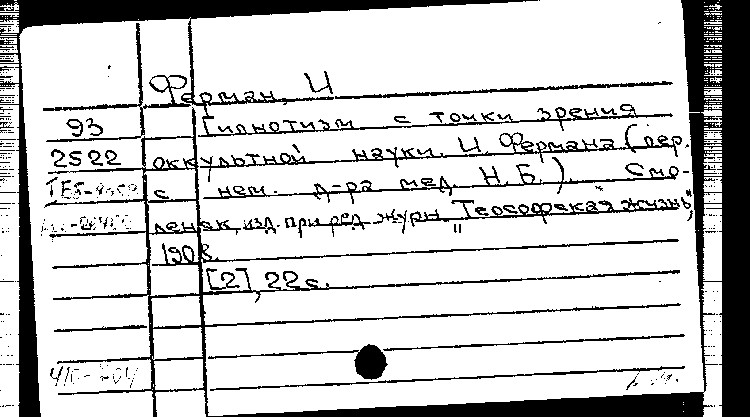 Ферман, И
93 Гипнотизм с точки зрения
2522 оккультной науки. И. Фермана (пер.
с нем. д-ра мед. Н. Б.) Смо-
ленск, изд. при ред. журн. "Теософская жизнь",
1908.
[2], 22 с.